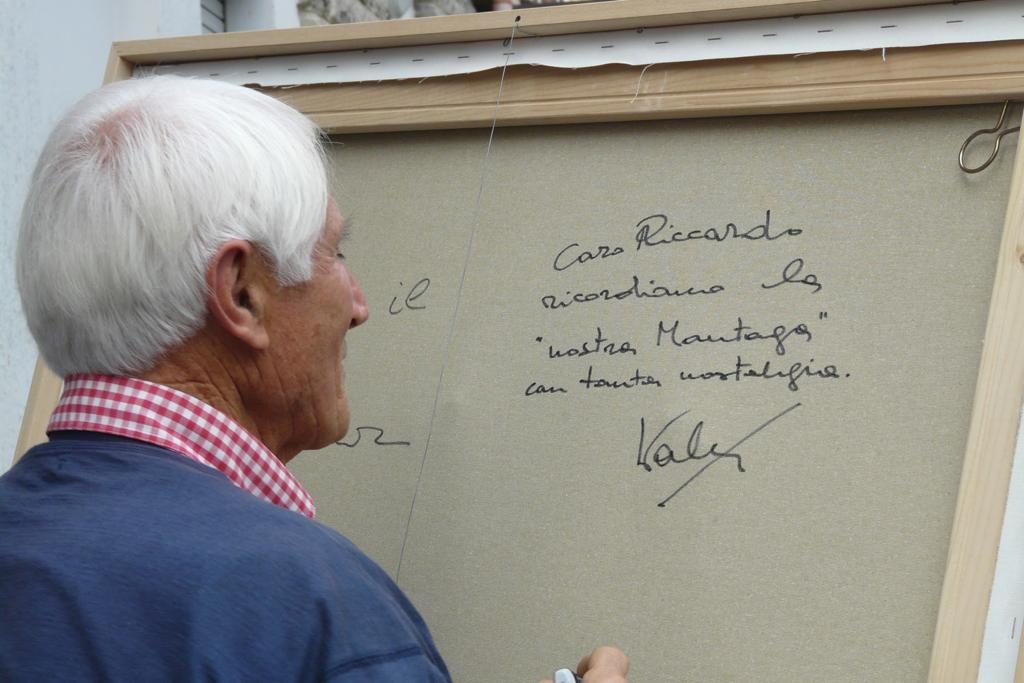 Caro Riccardo
il ricordiamo la
"nostra Montagna"
con tanta nostalgia.